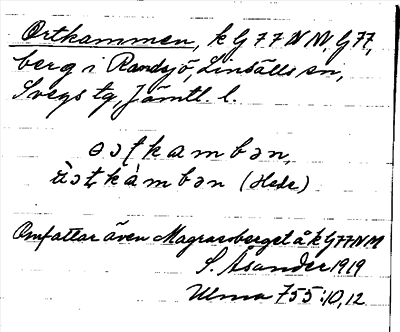 Ortkammen, k G 77 NV, G 77,
berg i Randsjö, Linsälls sn,
Svegs tg, Jämtl. l.
kambən,
(Hede)
Omfattar även Magrasberget å k G 77 NV
S. Åsander 1919
Ulma 755:10, 12